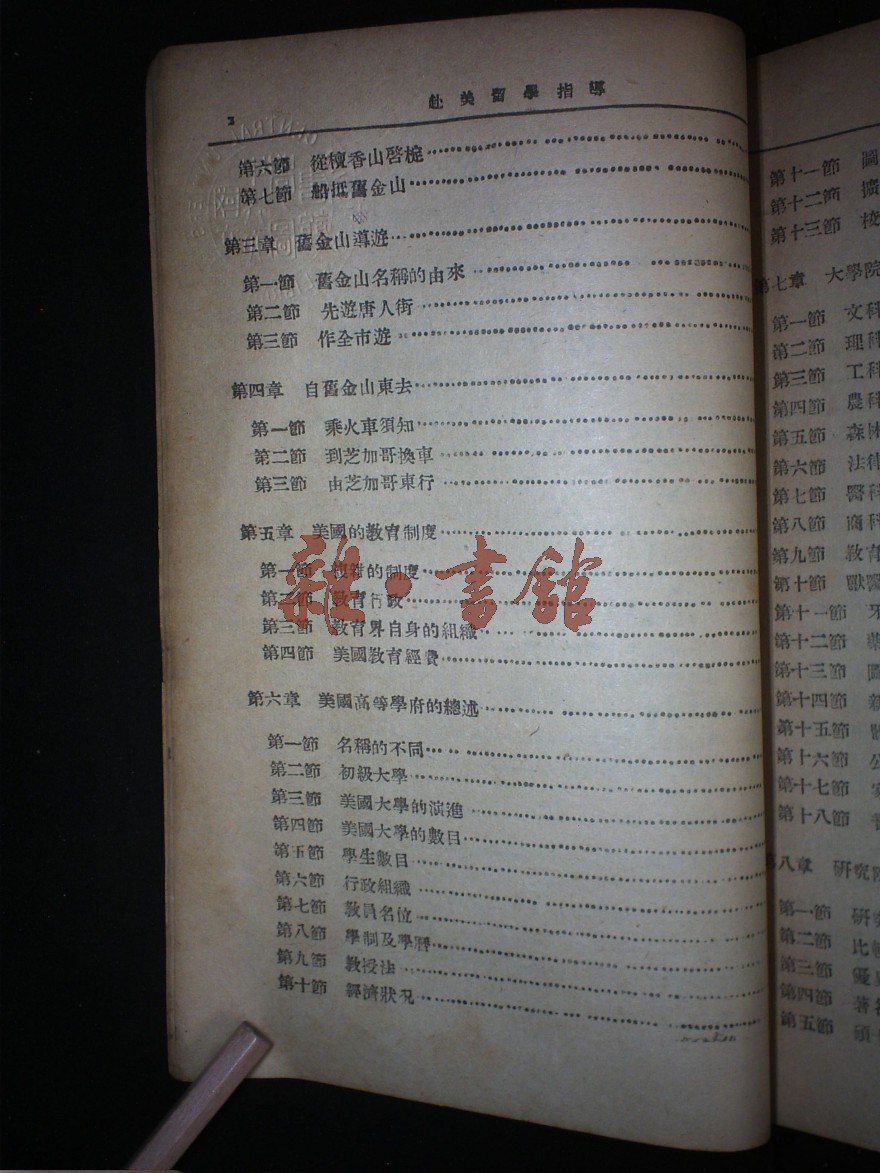 2
赴美留學指導
第六節 從檀香山啓椗
第七節 船抵舊金山
第三章 舊金山導遊
第一節 舊金山名稱的由來
第二節 先遊唐人街
第三節 作全市遊
第四章 自舊金山東去
第一節 乘火車須知
第二節 到芝加哥換車
第三節 由芝加哥東行
第五章 美國的教育制度
第一節 複雜的制度
第二節 教育行政
第三節 教育界自身的組織
第四節 美國教育經費
第六章 美國高等學府的總述
第一節 名稱的不同
第二節 初級大學
第三節 美國大學的演進
第四節 美國大學的數目
第五節 學生數目
第六節 行政組織
第七節 教員名位
第八節 學制及學曆
第九節 教授法
第十節 經濟狀况
雜·書館
第十一節 圖
第十二節 擴
第十三節 校
第七章 大學院
第一節 文科
第二節 理科
第三節 工科
第四節 農科
第五節 森林
第六節 法律
第七節 醫科
第八節 商科
第九節 教育
第十節 獸醫
第十一節 牙
第十二節 藥
第十三節 圖
第十四節 新
第十五節
第十六節 公
第十七節 家
第十八節
八章 研究院
第一節 研究
第二節 比
第三節 優
第四節 著名
第五節 碩